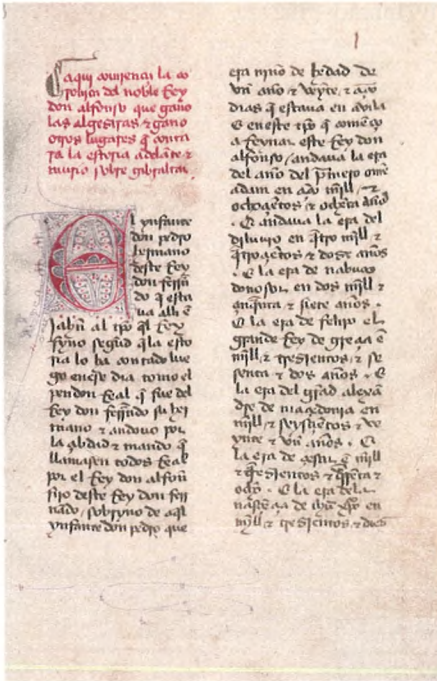 aqui comiença la co
ronica del noble Rey
don alfonso que gano
las algesiras & gano
otros lugares q conta
ra la estoria adelante &
murio sobre gibraltar
El ynfante
don pedro
hermano
deste Rey
don ferrñ
do q esta
ua alli e
Jahñ al tpo ql Rey
fyno segud q la esto
ria lo ha contado lue
go en ese dia tomo el
pendon Real q fue del
Rey don ferrñdo su her
mano & andouo por
la çbdad & mando q
llamasen todos Real
por el Rey don alfon
fijo deste Rey don ferr
nado sobryno de aql
ynfante don pedro que
1
era niño de hedad de
vn año & veynte &
dias q estaua en auila
E en este tpo q començo
a Reynar este Rey don
alfonso andaua la era
del año del primero ome
adam en mill &
ochoçientos & ocheta años
E andaua la era del
diluuio en qtro mill &
qtroçietos & doze años
E la era de nabuco
donosor en dos mill &
çinquta & siete años
E la era de felipo el
grande Rey de greçia e
mill & tresientos & se
senta & dos años E
la era del grad alexa
dre de maçedonia en
mill & seysçietos & ve
ynte & vn años E
la era de çesar e mill
& tresientos & çinqta &
ocho E la era de la
nasçeçia de ihu xpo en
mill & tresientos & dies